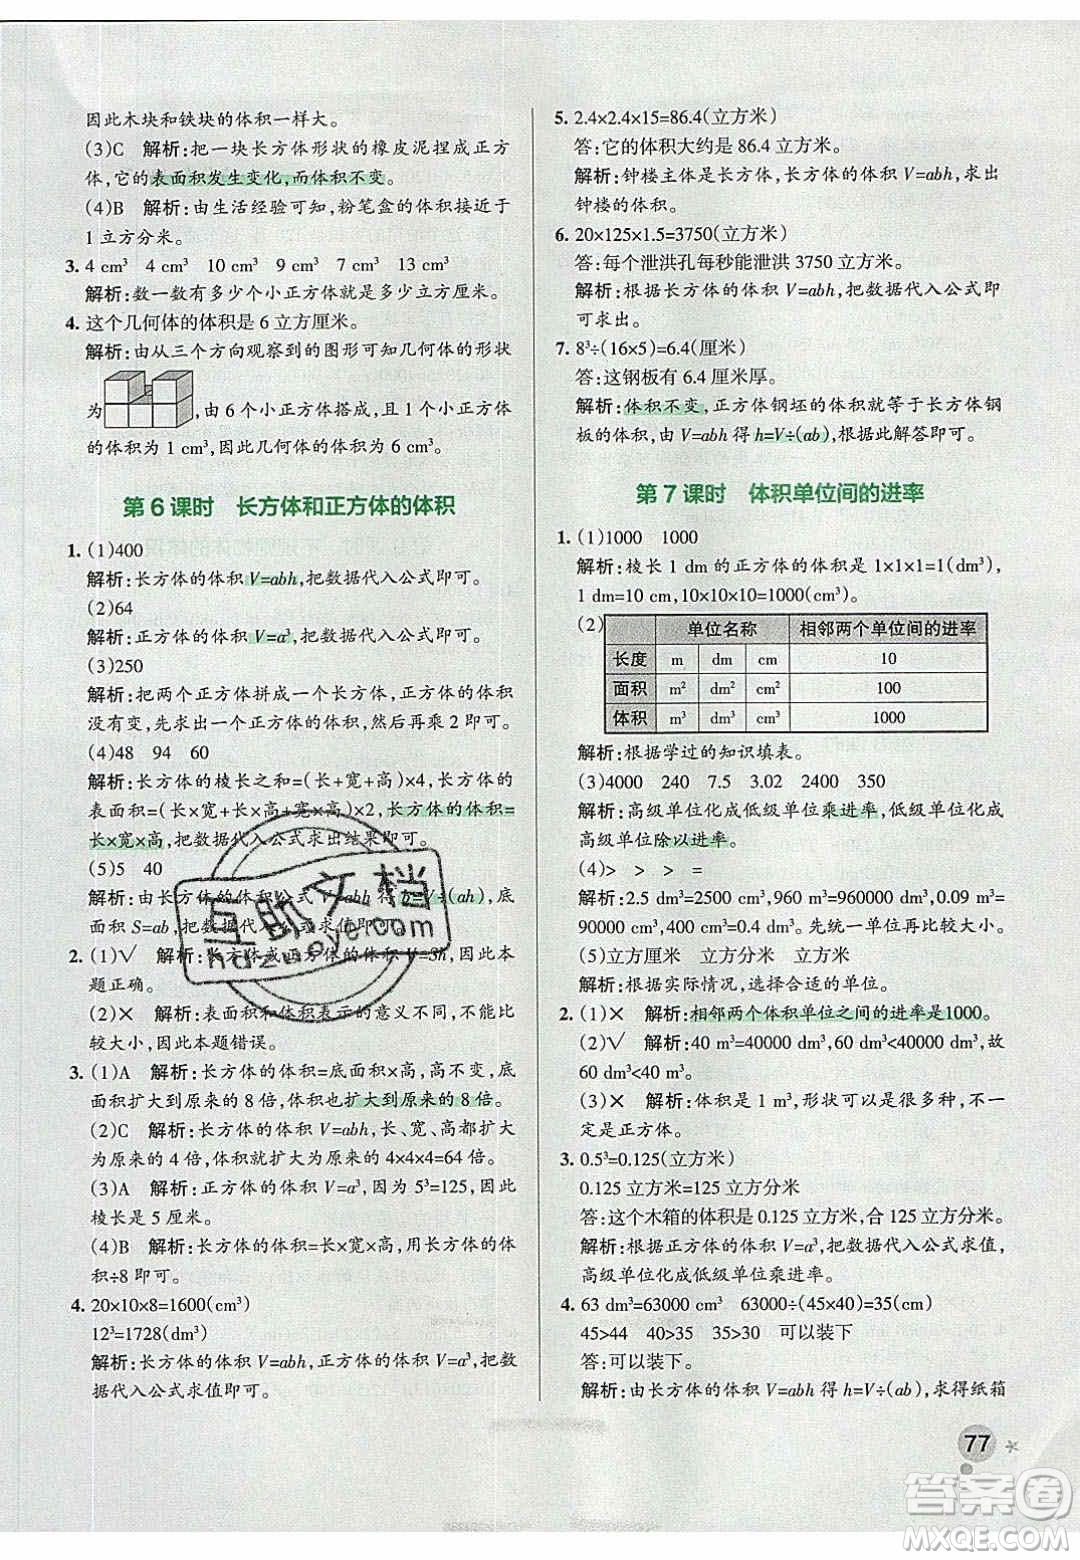 因此木块和铁块的体积一样大。
(3)C 解析:把一块长方体形状的橡皮泥捏成正方
体,它的表面积发生变化,而体积不变。
(4)B 解析:由生活经验可知,粉笔盒的体积接近于
1立方分米。
3. 4 cm³ 7 cm³ 10 cm³ 9 cm³ 7 cm³ 13 cm³
解析:数一数有多少个小正方体就是多少立方厘米。
4. 这个几何体的体积是6立方厘米。
解析:由从三个方向观察到的图形可知几何体的形状
为 ,由6个小正方体搭成,且1个小正方体
的体积为1 cm³,因此几何体的体积为6 cm³。
第6课时 长方体和正方体的体积
1. (1)400
解析:长方体的体积V=abh,把数据代入公式即可。
(2)64
解析:正方体的体积V=a³,把数据代入公式即可。
(3)250
解析:把两个正方体拼成一个长方体,正方体的体积
没有变,先求出一个正方体的体积,然后再乘2即可。
(4)48 94 60
解析:长方体的棱长之和=(长+宽+高)×4,长方体的
表面积=(长×宽+长×高+宽×高)×2,长方体的体积=
长×宽×高,把数据代入公式求出结果即可。
(5)5 40
解析:由长方体的体积公式V=abh得b=V÷(ah),底
面积S=ab,把数据代入公式求值即可。
2. (1)√ 解析:长方体或正方体的体积V=Sh,因此本
题正确。
(2)× 解析:表面积和体积表示的意义不同,不能比
较大小,因此本题错误。
3. (1)A 解析:长方体的体积=底面积×高,高不变,底
面积扩大到原来的8倍,体积也扩大到原来的8倍。
(2)C 解析:长方体的体积V=abh,长、宽、高都扩大
为原来的4倍,体积就扩大为原来的4×4×4=64倍。
(3)A 解析:正方体的体积V=a³,因为5³=125,所以
棱长是5厘米。
(4)B 解析:长方体的体积=长×宽×高,用长方体的体
积÷8即可。
4. 20×10×8=1600(cm³)
12³=1728(dm³)
解析:长方体的体积V=abh,正方体的体积V=a³,把
数据代入公式求值即可。
5. 2.4×2.4×15=86.4(立方米)
答:它的体积大约是86.4立方米。
解析:钟楼主体是长方体,长方体的体积V=abh,求出
钟楼的体积。
6. 20×125×1.5=3750(立方米)
答:每个泄洪孔每秒能泄洪3750立方米。
解析:根据长方体的体积V=abh,把数据代入公式即
可求出。
7. 8³÷(16×5)=6.4(厘米)
答:这钢板有6.4厘米厚。
解析:体积不变,正方体钢坯的体积就等于长方体钢
板的体积,由V=abh得h=V÷(ab),根据此解答即可。
第7课时 体积单位间的进率
1. (1)1000 1000
解析:棱长1 dm的正方体的体积是1×1×1=1(dm³),
1 dm=10 cm,10×10×10=1000(cm³)。
(2) 单位名称 相邻两个单位间的进率
长度 m dm cm 10
面积 m² dm² cm² 100
体积 m³ dm³ cm³ 1000
解析:根据学过的知识填表。
(3)4000 240 7.5 3.02 2400 350
解析:高级单位化成低级单位乘进率,低级单位化成
高级单位除以进率。
(4)> > > =
解析:2.5 dm³=2500 cm³,960 m³=960000 dm³,0.09 m³=
90000 cm³,400 cm³=0.4 dm³。先统一单位再比较大小。
(5)立方厘米 立方分米 立方米
解析:根据实际情况,选择合适的单位。
2. (1)× 解析:相邻两个体积单位之间的进率是1000。
(2)√ 解析:40 m³=40000 dm³,40000>39000,故
40 m³>39000 dm³。
(3)× 解析:体积是1 m³,形状可以是很多种,不一
定是正方体。
3. 0.5³=0.125(立方米)
0.125立方米=125立方分米
答:这个木箱的体积是0.125立方米,合125立方分米。
解析:根据正方体的体积V=a³,把数据代入公式求值,
高级单位化成低级单位乘进率。
4. 63 dm³=63000 cm³ 63000÷(45×40)=35(cm)
45>44 40>35 35>30 可以装下
答:可以装下。
解析:由长方体的体积V=abh得h=V÷(ab),求得纸箱
77
互助文档
huzuoye.com
答案圈
MXQE.COM